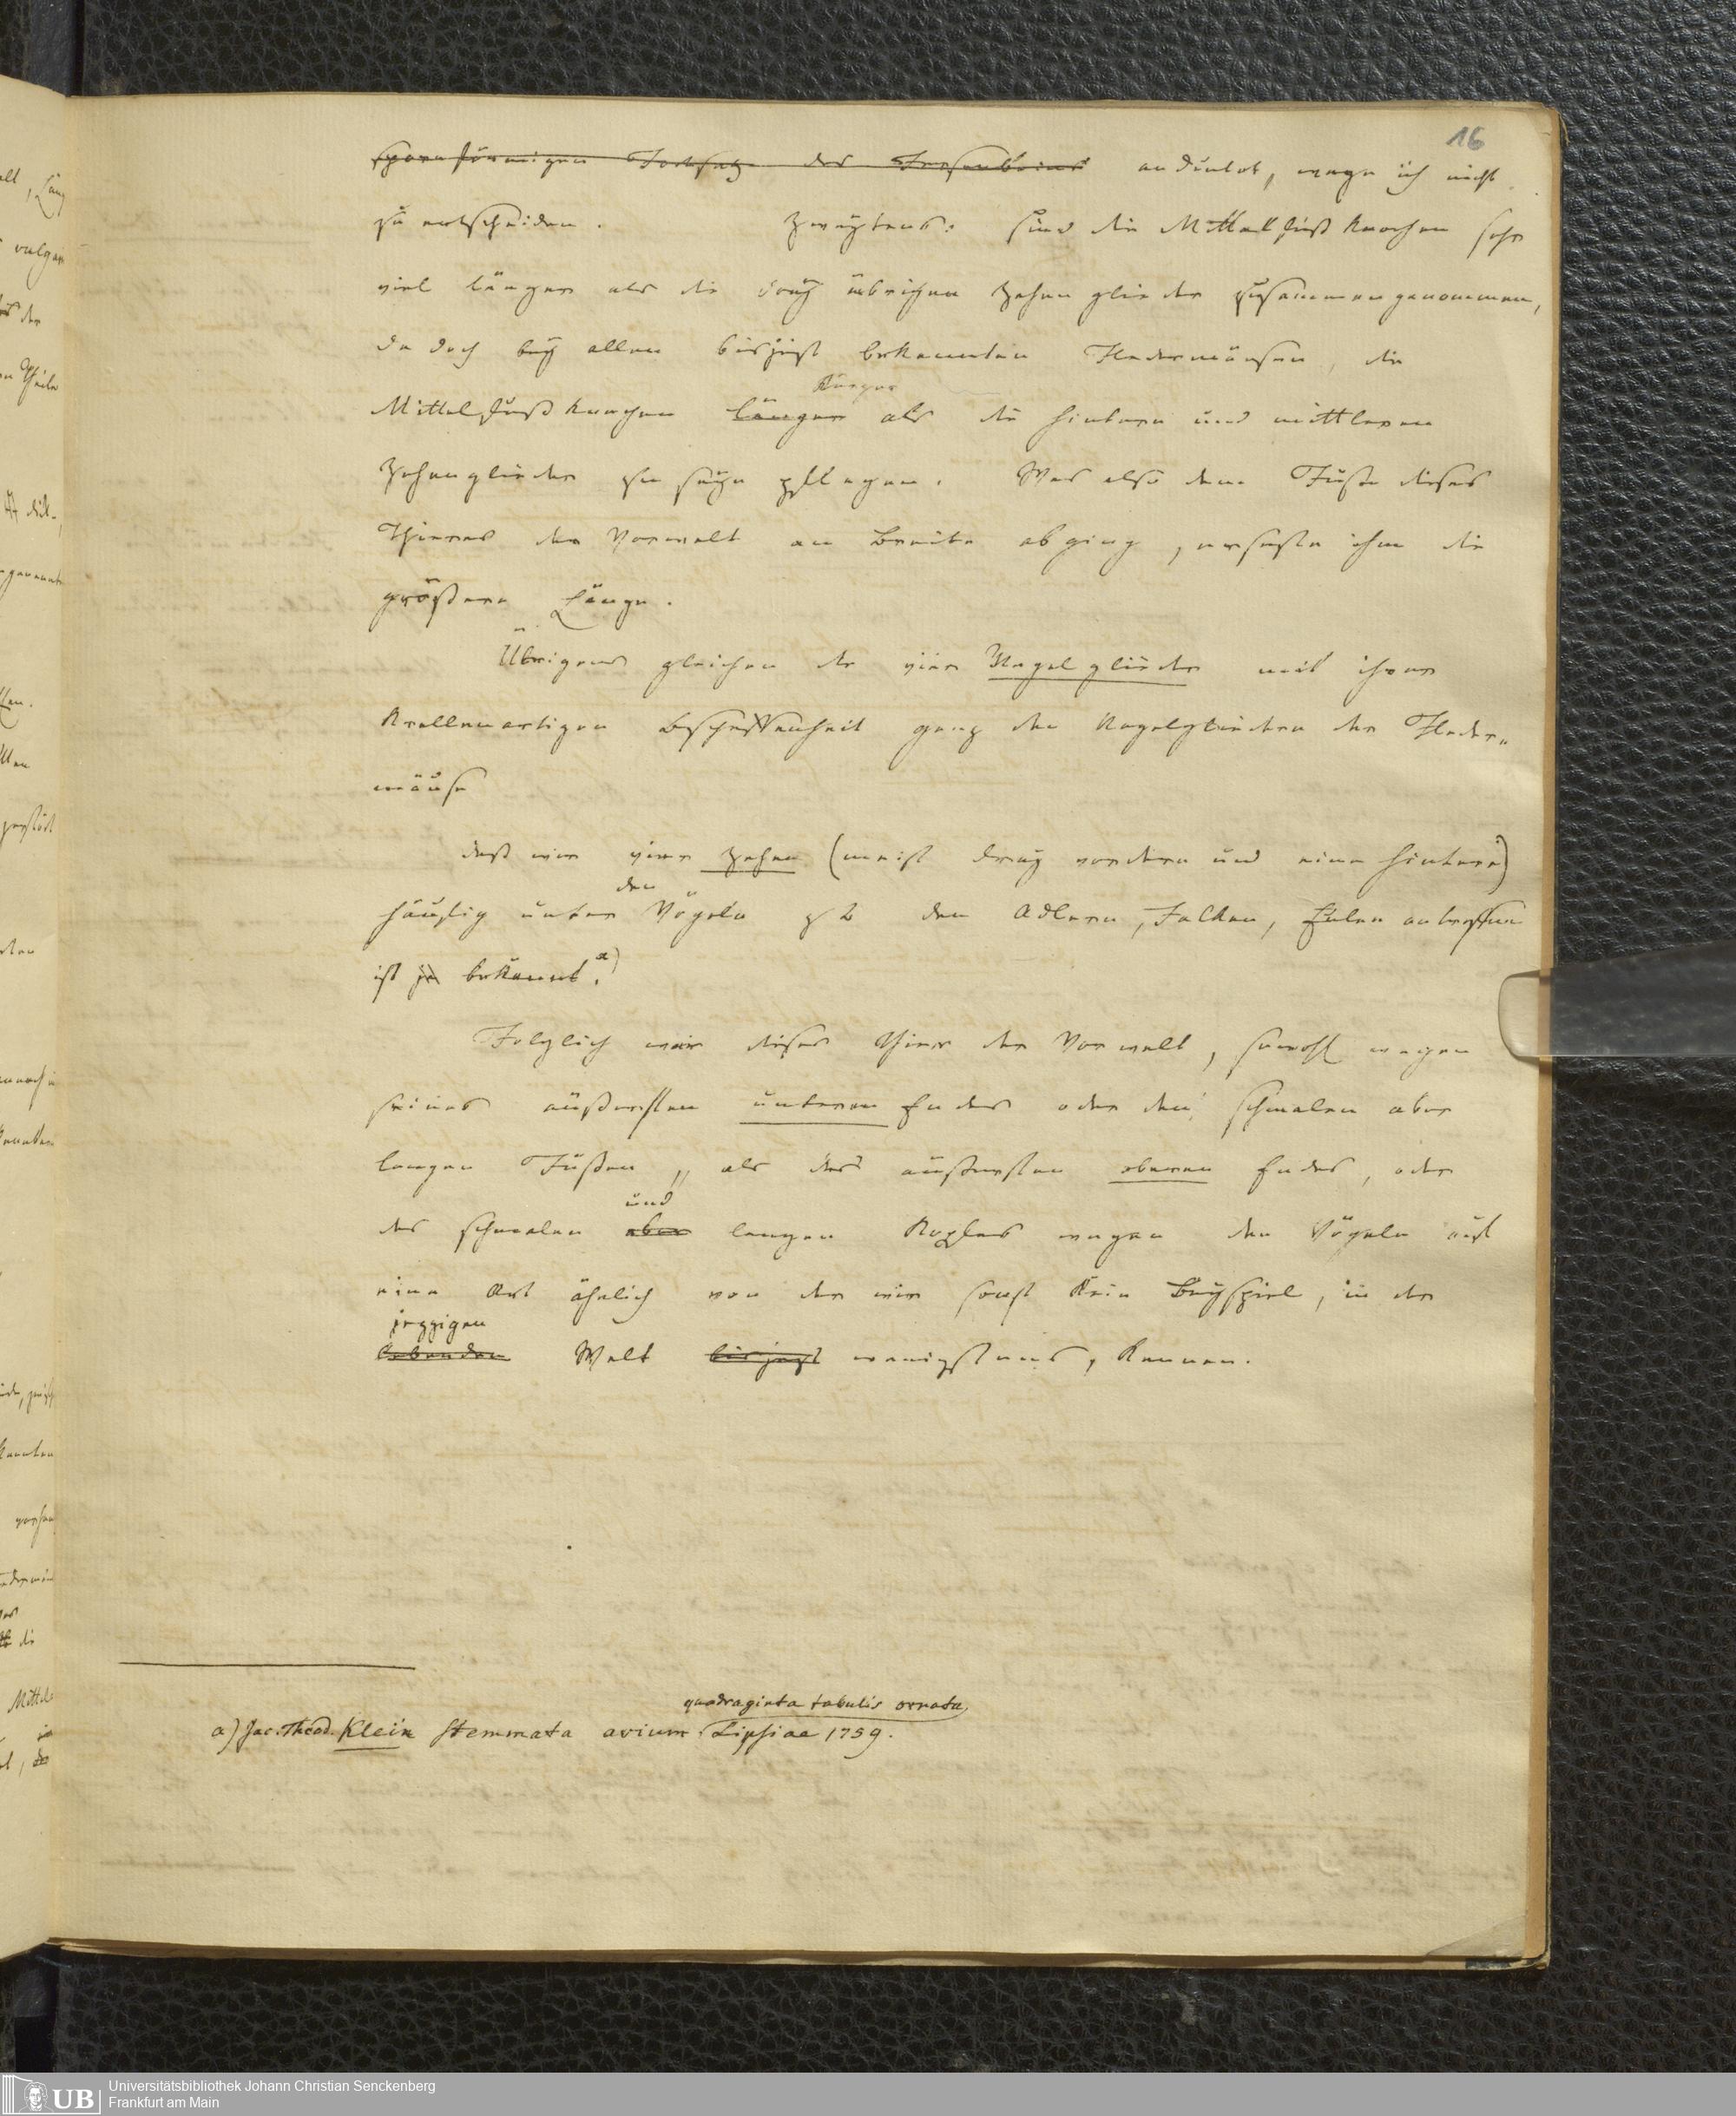 16
spornförmigen Fortsatz des Fersenbeins andeutet, wage ich nicht
zu entscheiden. Zweytens: sind die Mittelfußknochen sehr
viel länger als die drey übrigen Zehenglieder zusammengenommen,
da doch bey allen bisjezt bekannten Fledermäusen, die
kürzer
Mittelfußknochen länger als die hintern und mittleren
Zehenglieder zu seyn pflegen. Was also dem Fuße dieses
Thieres der Vorwelt an Breite abging, ersezte ihm die
größere Länge.
Übrigens gleichen die vier Nagelglieder mit ihrer
Krallenartigen Beschaffenheit ganz den Nagelgliedern der Fleder„
mäuse
daß wir vier Zehen (meist drey vordern und eine hintere)
den
häufig unter Vögeln z B den Adlern, Falken, Eulen antreffen
ist ja bekannt. a)
Folglich wär dieses Thier der Vorwelt, sowohl wegen
seines äußersten unteren Endes oder den schmalen aber
langen Füßen, als des äußersten oberen Endes, oder
und
des schmalen aber langen Kopfes wegen den Vögeln auf
eine Art ähnlich von der wir sonst kein Beyspiel, in der
jezzigen
lebenden Welt bisjezt wenigstens, kennen.
quadraginta tabulis ornata,
a) Jac. Theod. Klein Stemmata avium Lipsiae 1759.
UB
Universitätsbibliothek Johann Christian Senckenberg
Frankfurt am Main